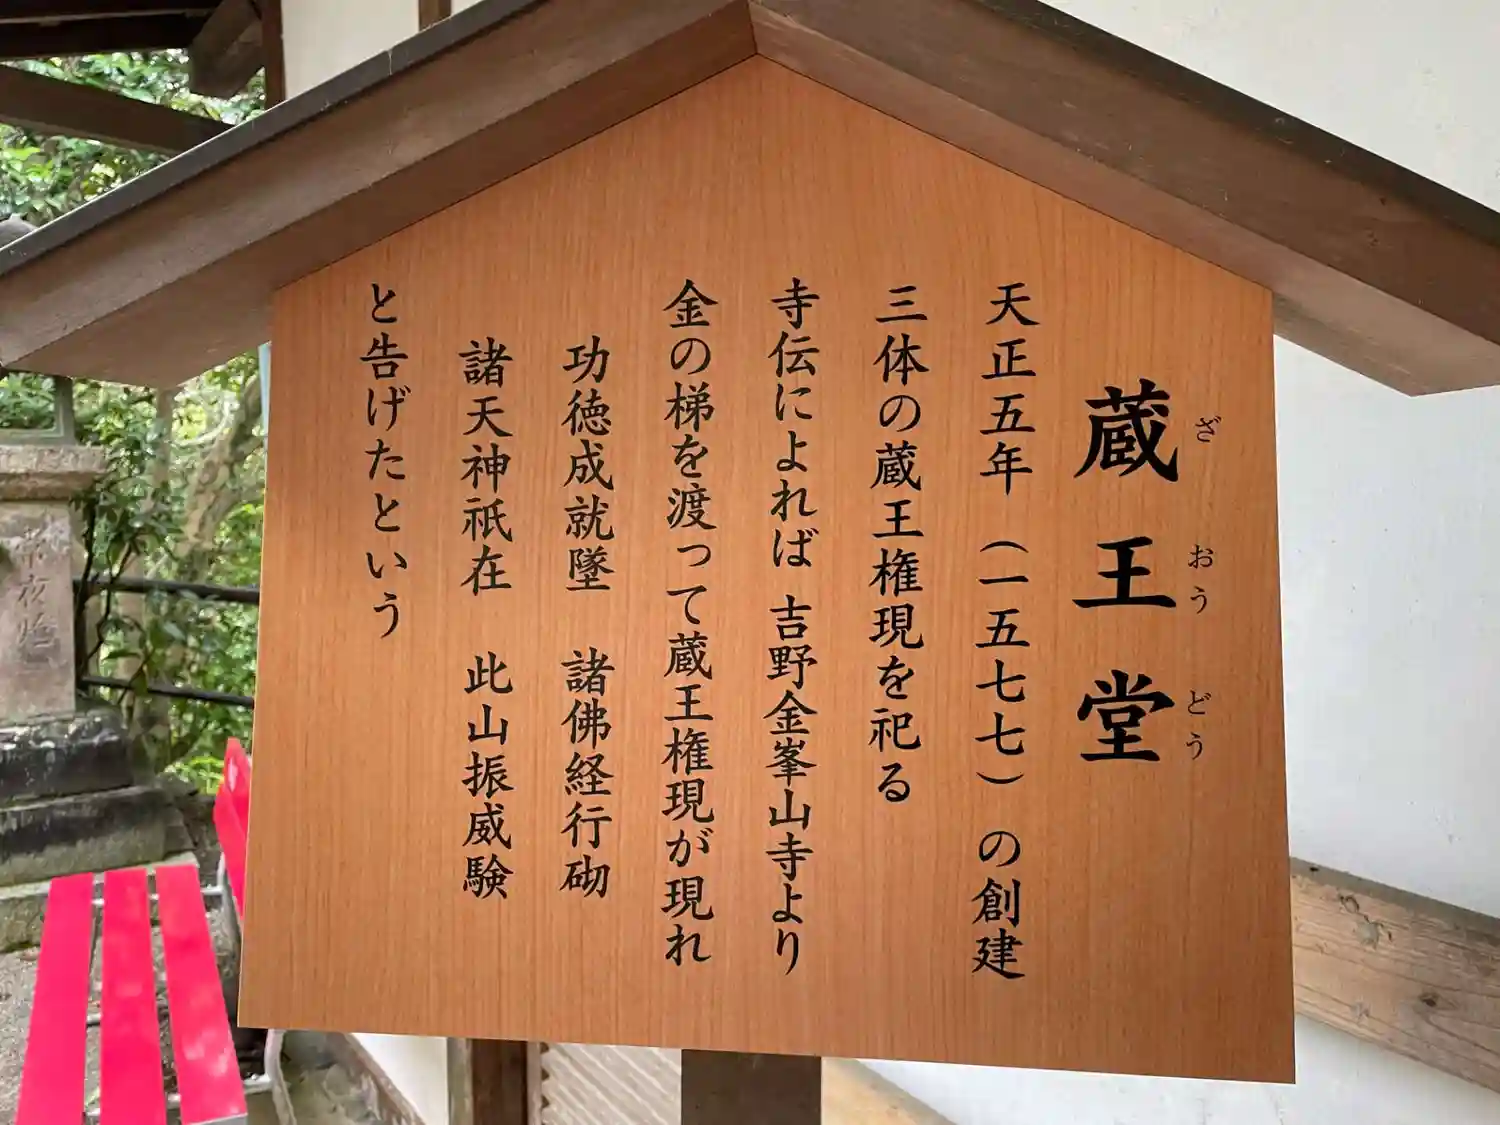 蔵王堂
ざ おう どう
天正五年（一五七七）の創建
三体の蔵王権現を祀る
寺伝によれば 吉野金峯山寺より
金の梯を渡って蔵王権現が現れ
功徳成就墜 諸佛経行砌
諸天神祇在 此山振威験
と告げたという